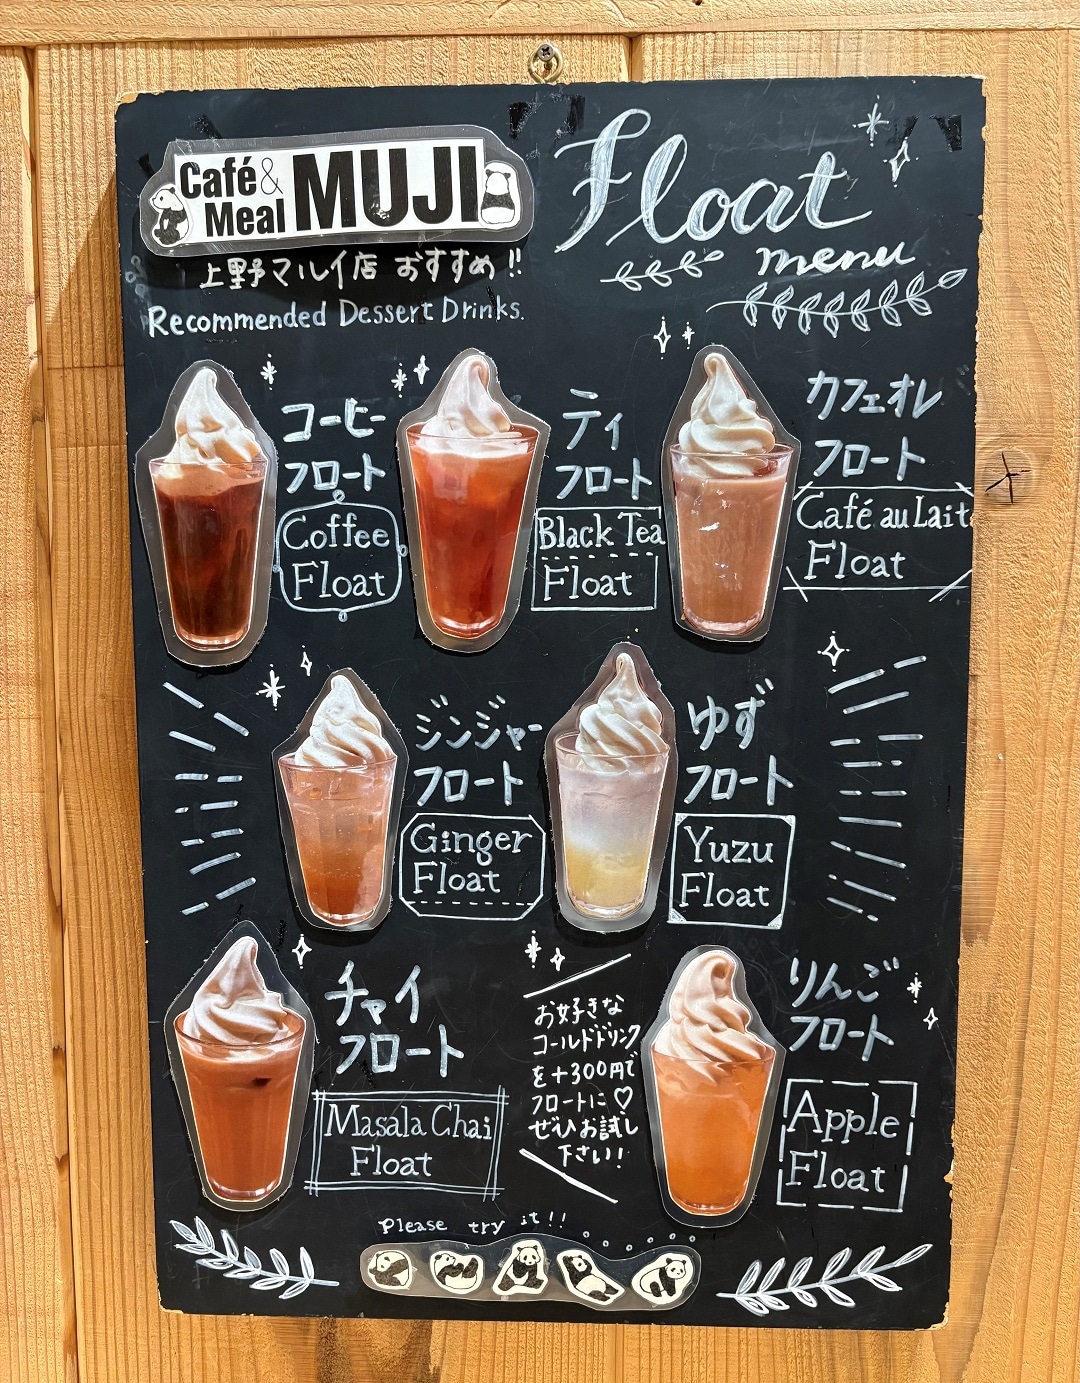 Café & Meal MUJI
上野マルイ店 おすすめ!!
Recommended Dessert Drinks.
Float
menu
コーヒー
フロート
Coffee
Float
ティ
フロート
Black Tea
Float
カフェオレ
フロート
Café au Lait
Float
ジンジャー
フロート
Ginger
Float
ゆず
フロート
Yuzu
Float
チャイ
フロート
Masala Chai
Float
お好きな
コールドドリンク
を+300円で
フロートに♡
ぜひお試し
下さい!
りんご
フロート
Apple
Float
Please try it!!